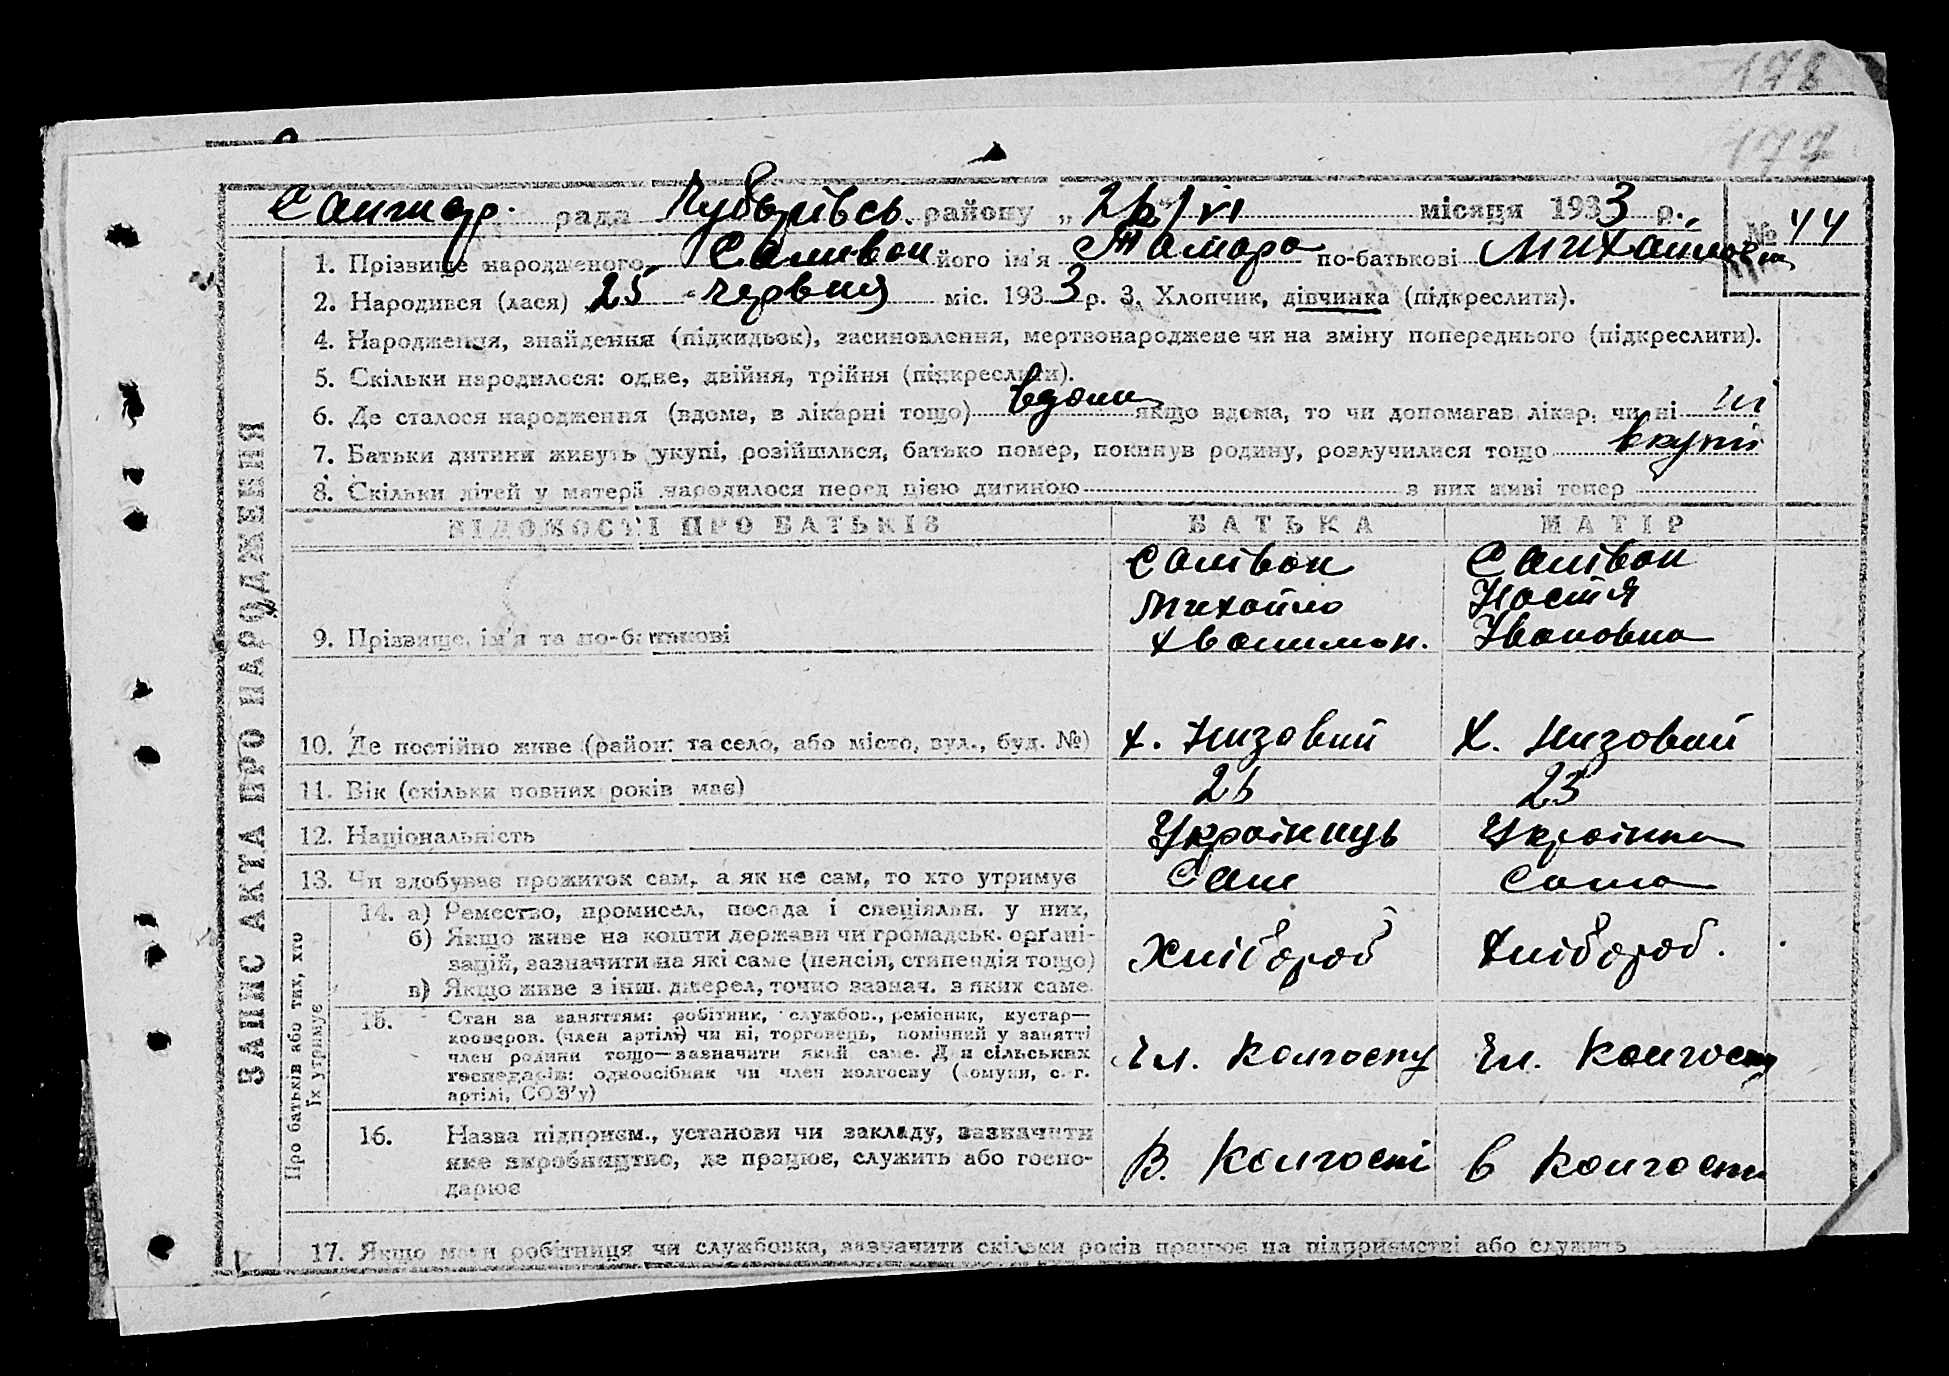 178
177
Санжар. рада Чубарівсь. району „ 26/VI місяця 1933 р. № 44
1. Прізвище народженого Салівон його ім'я Тамара по-батькові Михайловн
2. Народився (лася) 25 червня міс. 1933 р. 3. Хлопчик, дівчинка (підкреслити).
4. Народження, знайдення (підкидьок), засиновлення, мертвонароджене чи на зміну попереднього (підкреслити).
5. Скільки народилося: одне, двійня, трійня (підкреслити).
6. Де сталося народження (вдома, в лікарні тощо) вдома якщо вдома, то чи допомагав лікар, чи ні ні
7. Батьки дитини живуть укупі, розійшлися, батько помер, покинув родину, розлучилися тощо вкупі
8. Скільки дітей у матери народилося перед цією дитиною з них живі тепер
ЗАПИС АКТА ПРО НАРОДЖЕННЯ
ВІДОМОСТІ ПРО БАТЬКІВ БАТЬКА МАТІР
9. Прізвище, ім'я та по-батькові
Салівон Михайло
Салівон Настя Івановна
10. Де постійно живе (район та село, або місто, вул., буд. №) х. Низовий х. Низовий
11. Вік (скільки повних років має) 26 23
12. Національність Українець Українка
13. Чи здобуває прожиток сам, а як не сам, то хто утримує Сам Сама
Про батьків або тих, хто їх утримує
14. а) Ремество, промисел, посада і спеціяльн. у них,
б) Якщо живе на кошти держави чи громадськ. органі-
зацій, зазначити на які саме (пенсія, стипендія тощо)
в) Якщо живе з інш. джерел, точно зазнач. з яких саме
Хлібороб Хлібороб.
15. Стан за заняттям: робітник, службов., ремісник, кустар—
кооперов. (член артілі) чи ні, торговець, помічний у занятті
член родини тощо—зазначити який саме. Для сільських
господарів: одноосібник чи член колгоспу (комуни, с.-г.
артілі, СОЗ'у)
Чл. колгоспу Чл. колгоспу
16. Назва підприєм., установи чи закладу, зазначити
яке виробництво, де працює, служить або госпо-
дарює
В. колгоспі в колгоспі
17. Якщо мати робітниця чи службовка, зазначити скільки років працює на підприємстві або служить